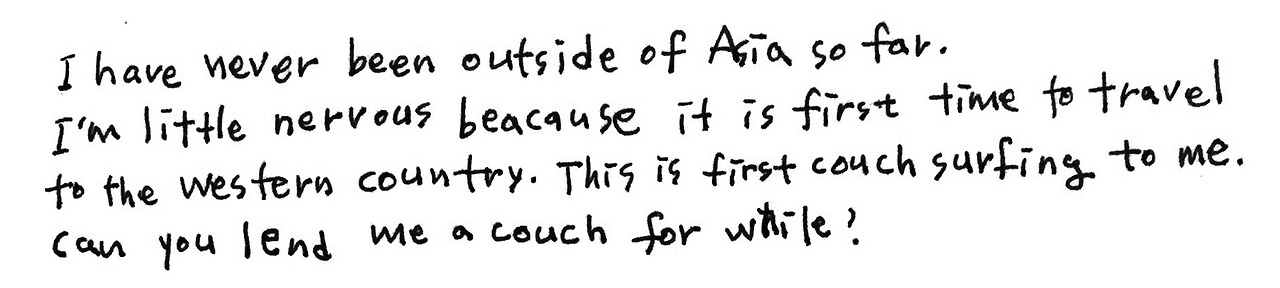 I have never been outside of Asia so far.
I'm little nervous beacause it is first time to travel
to the western country. This is first couch surfing to me.
can you lend me a couch for while?